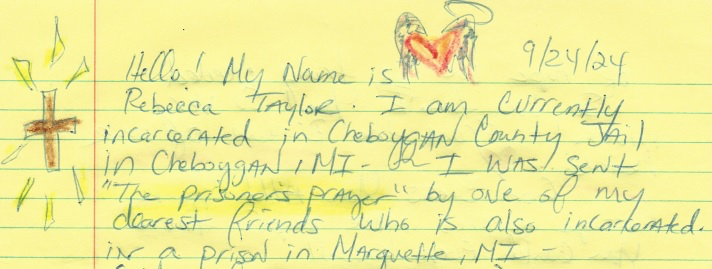 Hello! My Name is
9/24/24
Rebecca TAYLOR. I am currently
incarcerated in CheboygAN County JAil
in CheboygAN, MI - I WAS SENT
"The prisoner's prayer" by one of my
dearest friends who is also incarcerated.
in a prison in MArquette, MI -